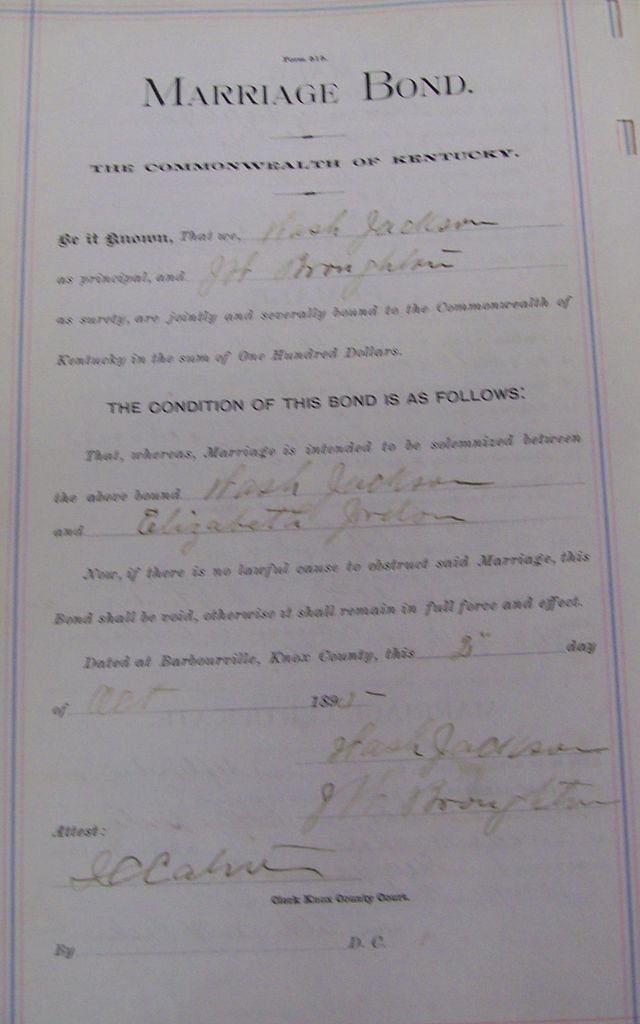 MARRIAGE BOND.
THE COMMONWEALTH OF KENTUCKY.
Be it Known, That we, Wash Jackson
as principal, and J W Broughton
as surety, are jointly and severally bound to the Commonwealth of
Kentucky in the sum of One Hundred Dollars.
THE CONDITION OF THIS BOND IS AS FOLLOWS:
That, whereas, Marriage is intended to be solemnized between
the above bound Wash Jackson
and Elizabeth Jordon
Now, if there is no lawful cause to obstruct said Marriage, this
Bond shall be void, otherwise it shall remain in full force and effect.
Dated at Barbourville, Knox County, this day
of Oct 189
Wash Jackson
J W Broughton
Attest:
Clerk Knox County Court.
By D. C.